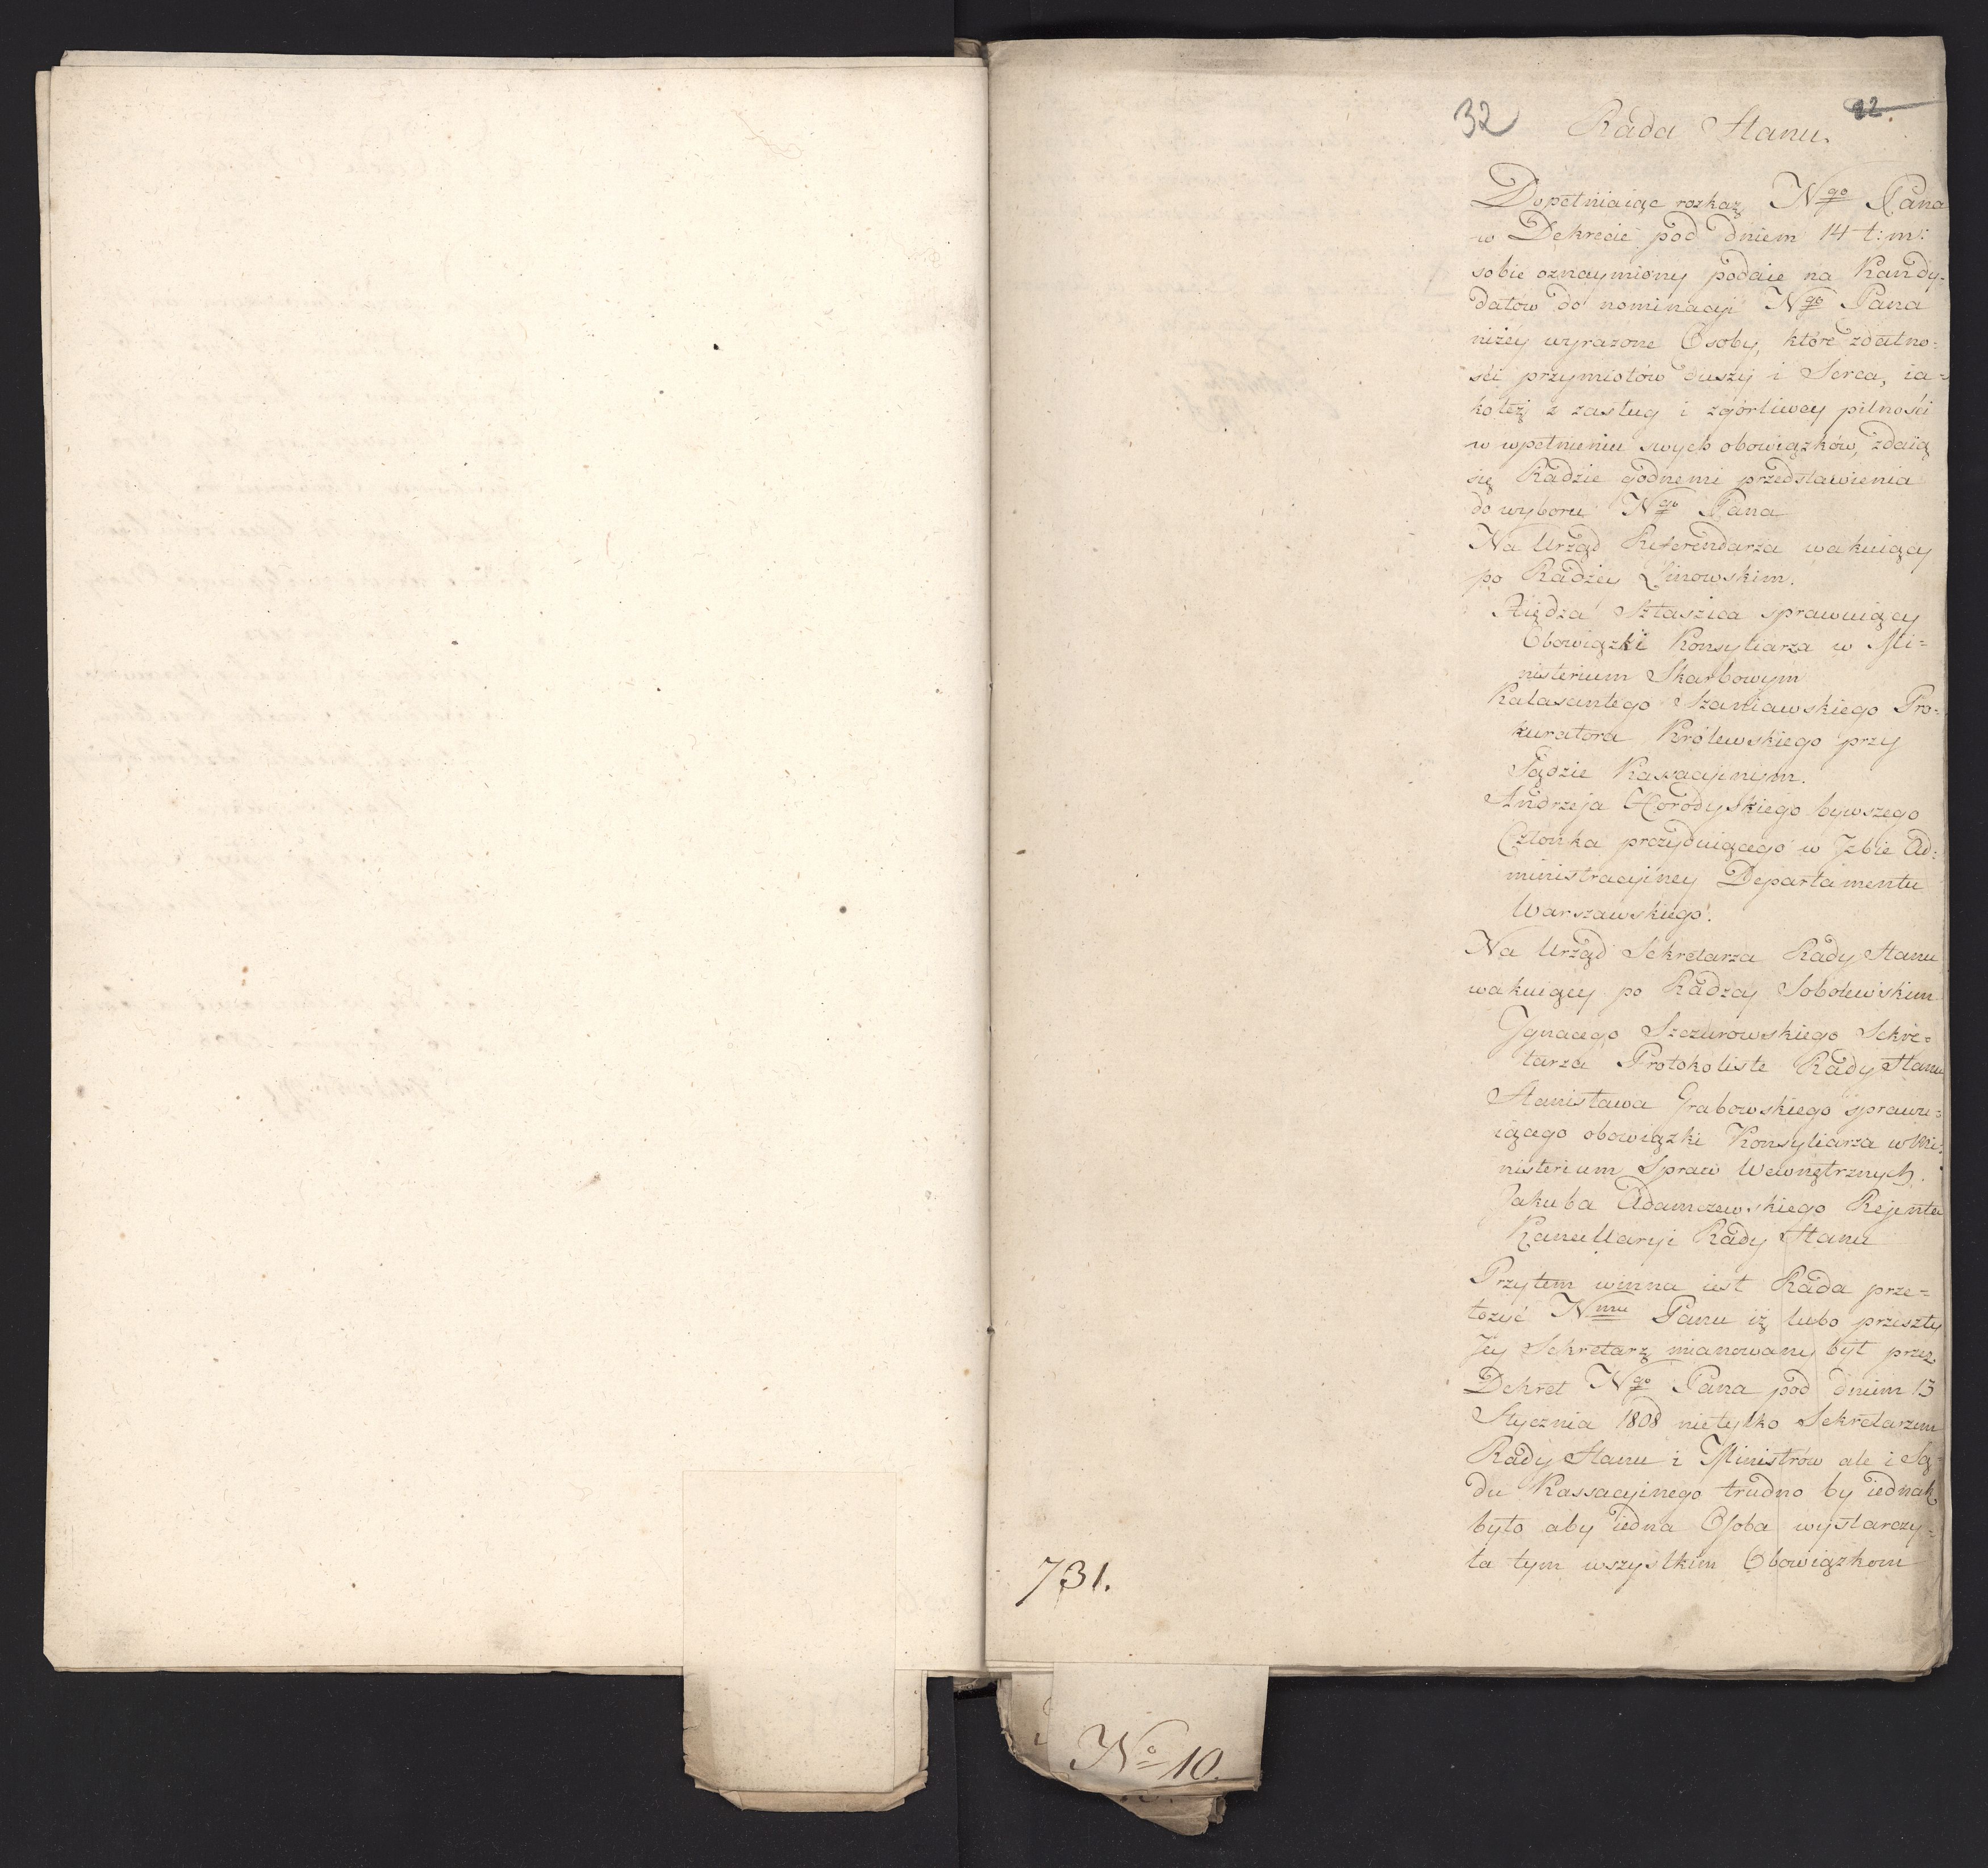 32
22.
Rada Stanu.
Dopełniaiąc rozkaz Ngo Pana
w Dekrecie pod dniem 14 t: m:
sobie oznaymiony podaie na Kandy-
datow do nominacyi Ngo Pana
niżéy wyrażone Osoby, które zdatno-
ści przymiotów duszy i Serca, ia-
koteż z zasług i zgórliwey pilności
w wpełnieniu swych obowiązków, zdaią
się Radzie godnemi przedstawienia
do wyboru Ngo Pana
Na Urząd Referendarza wakuiący
po Radzcy Linowskim.
Xiędza Sztaszica sprawuiący
Obowiązki Konsyliarza w Mi-
nisterium Skarbowym
Kalasantego Szaniawskiego Pro-
kuratora Królewskiego przy
Sądzie Kassacyinym.
Andrzeja Horodyskiego bywszego
Członka prezyduiącego w Izbie Ad-
ministracyiney Departamentu
Warszawskiego.
Na Urząd Sekretarza Rady Stanu
wakuiący po Radzcy Sobolewskim
Ignacego Szczurowskiego Sekre-
tarza Protokoliste Rady Stanu
Stanisława Grabowskiego sprawu-
iącego obowiązki Konsyliarza w Mi-
nisterium Spraw Wewnętrznych.
Jakuba Adamczewskiego Rejenta
Kancellaryi Rady Stanu
Przytem winna iest Rada prze-
łożyć Nmu Panu iż lubo przeszły
Jey Sekretarz mianowany był przez
Dekret Ngo Pana pod dniem 13
Stycznia 1808 nietylko Sekretarzem
Rady Stanu i Ministrów ale i Są-
du Kassacyinego trudno by iednak
było aby iedna Osoba wystarczy-
ła tym wszystkim Obowiązkom
731.
No 10.